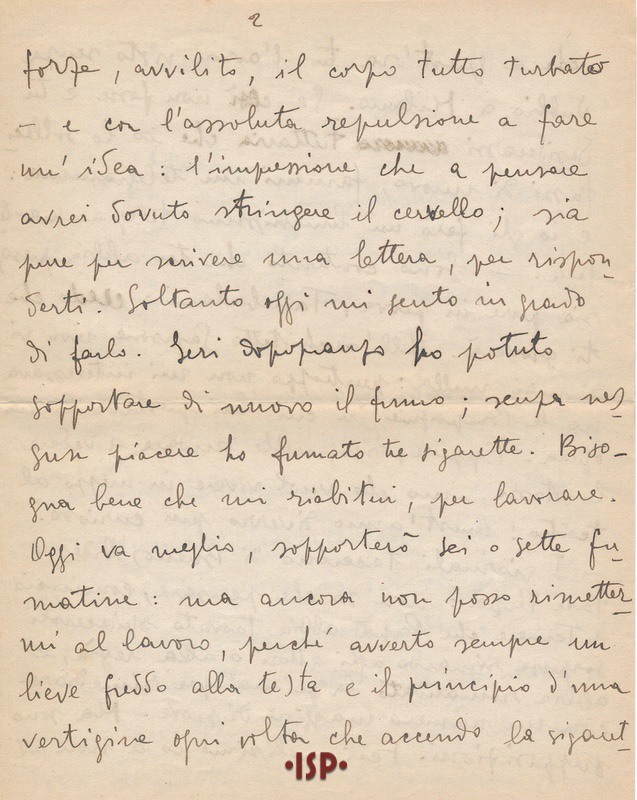 2
forze, avvilito, il corpo tutto turbato
– e con l'assoluta repulsione a fare
un' idea: l'impressione che a pensare
avrei dovuto stringere il cervello; sia
pure per scrivere una lettera, per rispon-
derti. Soltanto oggi mi sento in grado
di farlo. Ieri dopopranzo ho potuto
sopportare di nuovo il fumo; senza nes-
sun piacere ho fumato tre sigarette. Biso-
gna bene che mi riabitui, per lavorare.
Oggi va meglio, sopporterò sei o sette fu-
matine: ma ancora non posso rimetter-
mi al lavoro, perché avverto sempre un
lieve freddo alla testa e il principio d'una
vertigine ogni volta che accendo la sigaret-
•ISP•